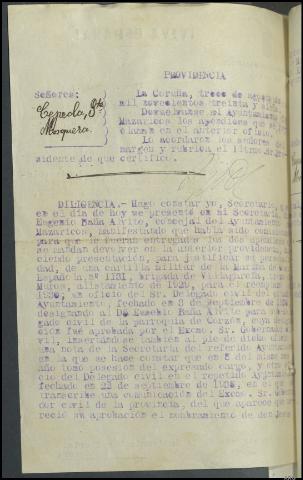 PROVIDENCIA
Señores:
Cepeda, Pte
Mosquera.
La Coruña, trece de agosto de
mil novecientos treinta y
Devuelvanse al Ayuntamiento
Mazaricos los apendices que se re
claman en el anterior oficio.
Lo acordaron los señores del
margen y rubrica el Iltmo Sr. Pre
sidente de que certifico.
DILIGENCIA.- Hago constar yo, Secretario, que
en el dia de hoy se presentó en mi Secretaria, D.
Eugenio Baña Alvite, concejal del Ayuntamiento
Mazaricos, manifestando que habia sido comisionado
para que le fueran entregados los dos apendices
se mandan devolver en la anterior providencia,
ciendo presentación, para justificar su personali
dad, de una cartilla militar de la Marina de
Española nº 1131, brigada de
Muros, alistamiento de 1929, para el reemplazo
1930; un oficio del Sr. Delegado civil del citado
Ayuntamiento, fechado en 3 de septiembre de
designando al Dn Eugenio Baña Alvite para
gado civil de la parroquia de Corzón, cuya
ción fue aprobada por el Excmo. Sr. Gobernador ci
vil, insertandose tambien al pie de dicho
una nota de la Secretaria del referido Ayuntamiento
en la que se hace constar que en 5 del mismo mes
año tomó posesión del expresado cargo, y otro
cio del Delegado civil en el repetido Ayuntamiento
fechado en 22 de septiembre de en el que
transcribe una comunicación del Excmo. Sr. Goberna
dor civil de la provincia, del que aparece que
reció su aprobación el nombramiento de